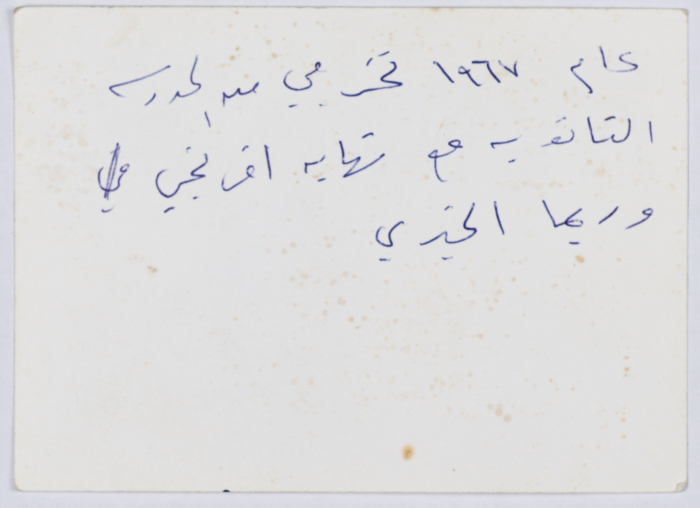 عام ١٩٦٧ تخرجي من المدرسه
الثانويه مع نهايه افرنجي
وريما الخيري